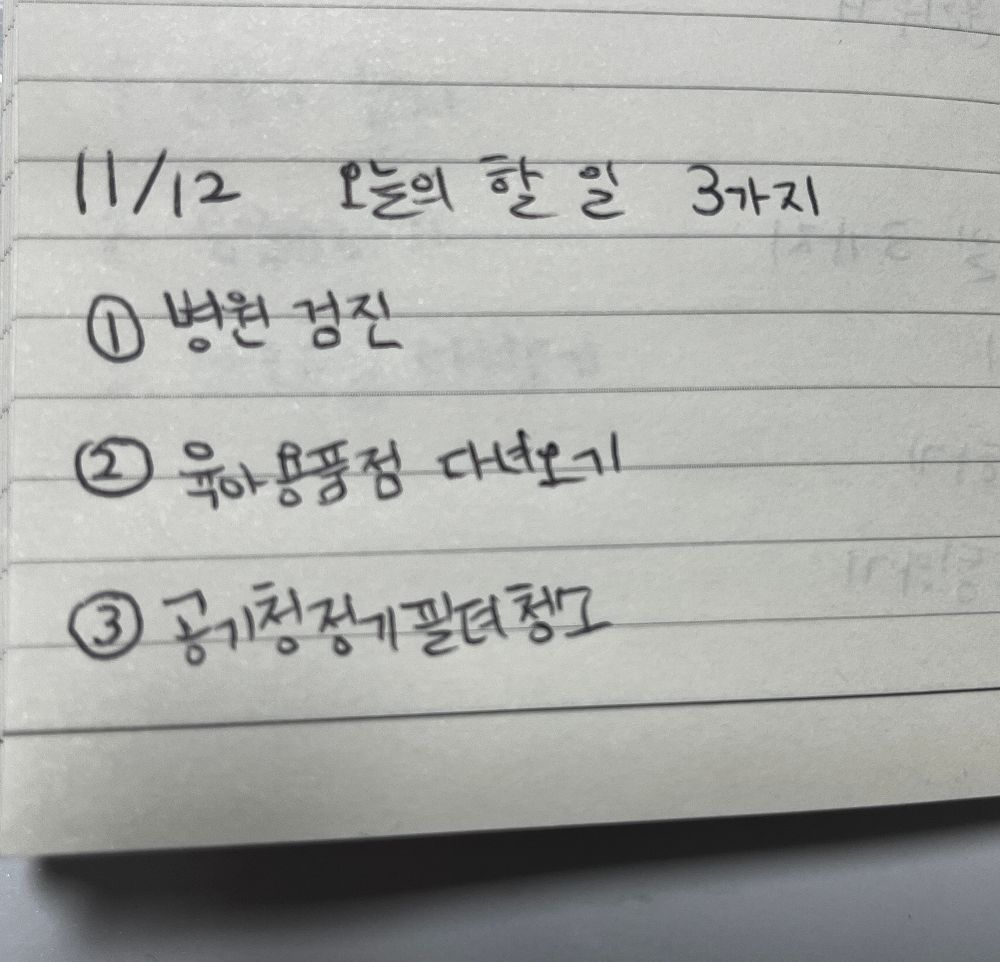 11/12 오늘의 할 일 3가지
① 병원 검진
② 육아용품점 다녀오기
③ 공기청정기필터청소